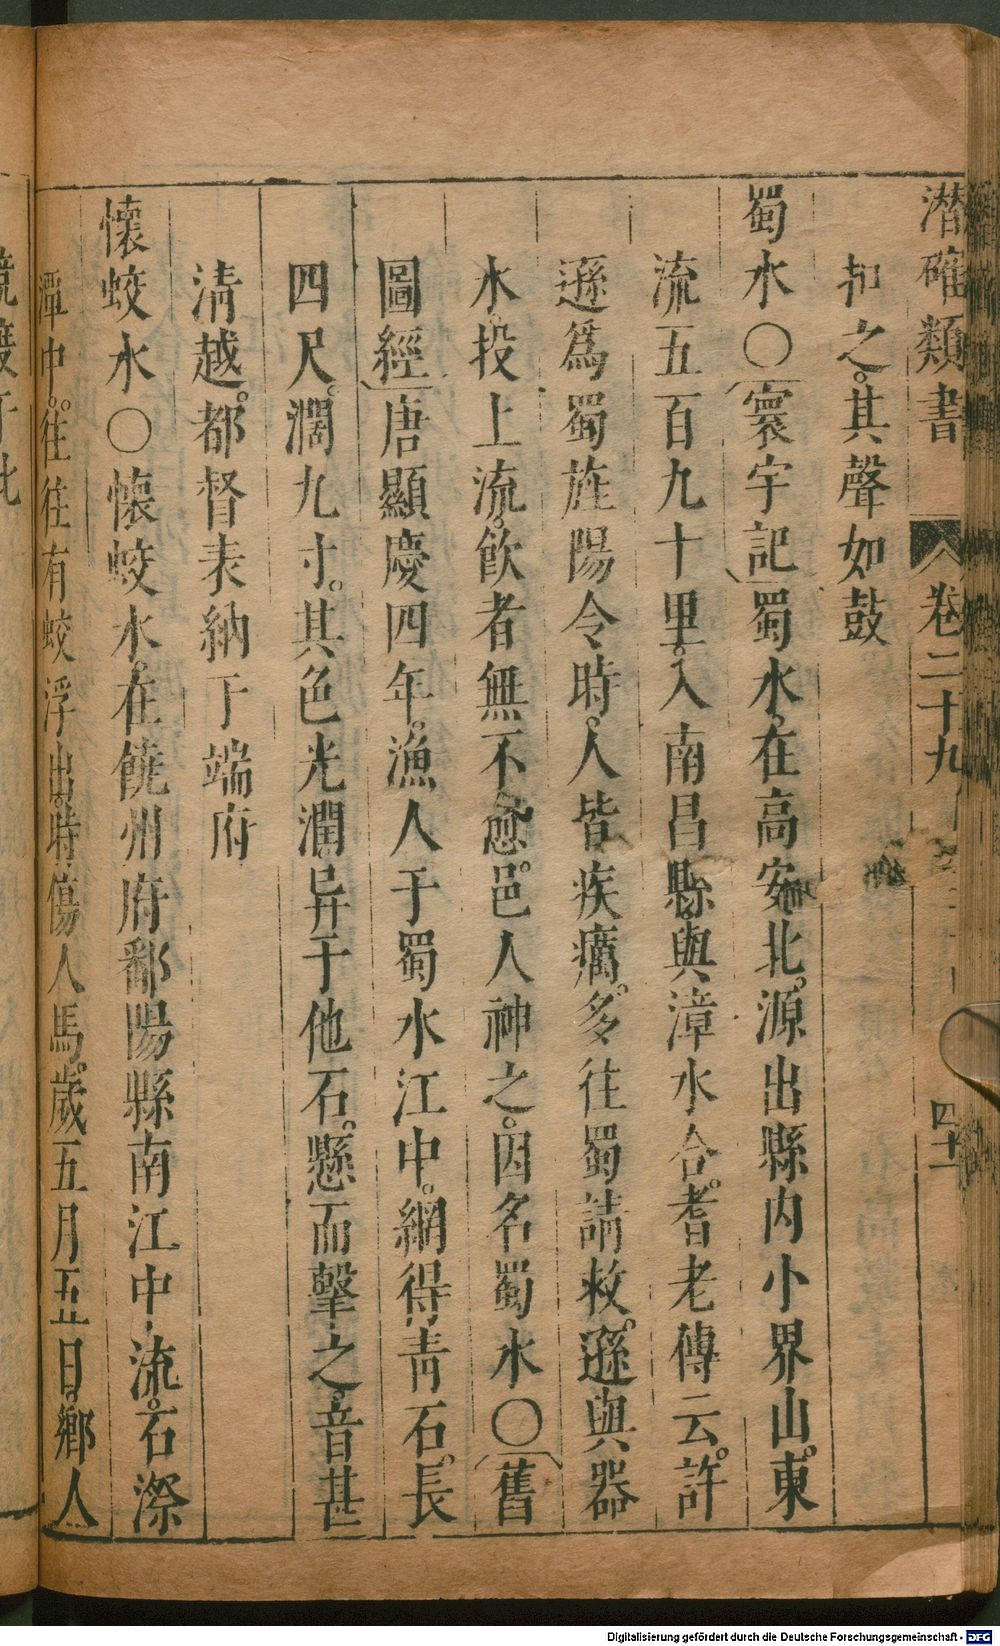 潜確類書 卷二十九 四十一
扣之。其聲如鼓
蜀水〇寰宇記蜀水。在高安北。源出縣內小界山。東
流五百九十里。入南昌縣。與漳水合。耆老傳云。許
遜爲蜀旌陽令時。人皆疾癘。多往蜀請救。遜與器
水。投上流。飲者無不愈。邑人神之。因名蜀水〇舊
圖經唐顯慶四年。漁人于蜀水江中。網得青石。長
四尺。濶九寸。其色光潤。异于他石。懸而擊之。音甚
清越。都督表納于端府
懷蛟水〇懷蛟水。在饒州府鄱陽縣南江中流。石際
潭中。往往有蛟浮出。時傷人馬。歲五月五日。鄉人
Digitalisierung gefördert durch die Deutsche Forschungsgemeinschaft - DFG